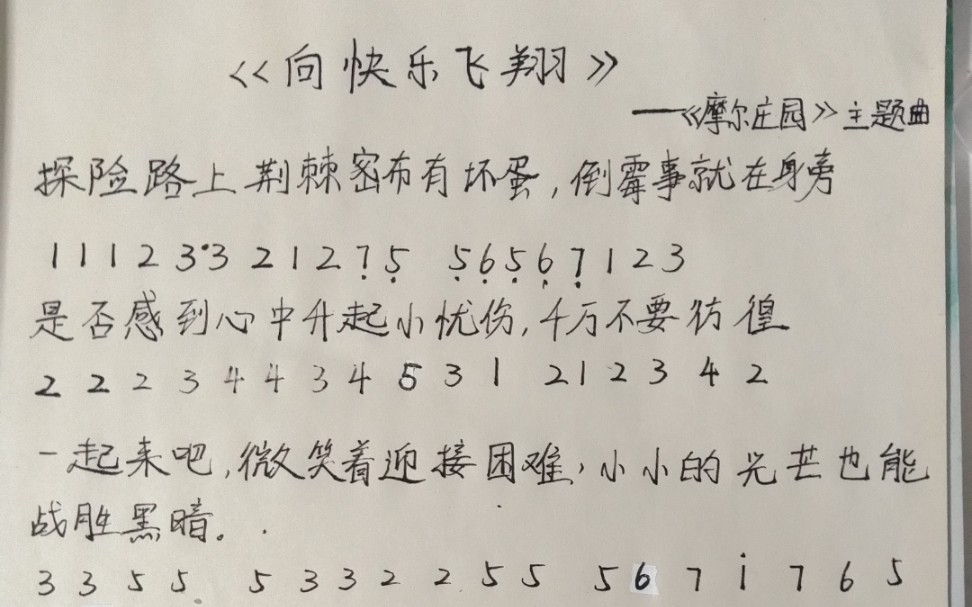 《向快乐飞翔》
——《摩尔庄园》主题曲
探险路上荆棘密布有坏蛋,倒霉事就在身旁
1 1 1 2 3·3 2 1 2 7̣ 5̣ 5̣ 6̣ 5̣ 6̣ 7̣ 1 2 3
是否感到心中升起小忧伤,千万不要彷徨
2 2 2 3 4 4 3 4 5 3 1 2 1 2 3 4 2
一起来吧,微笑着迎接困难,小小的光芒也能
战胜黑暗。
3 3 5 5 5 3 3 2 2 5 5 5 6 7 i 7 6 5